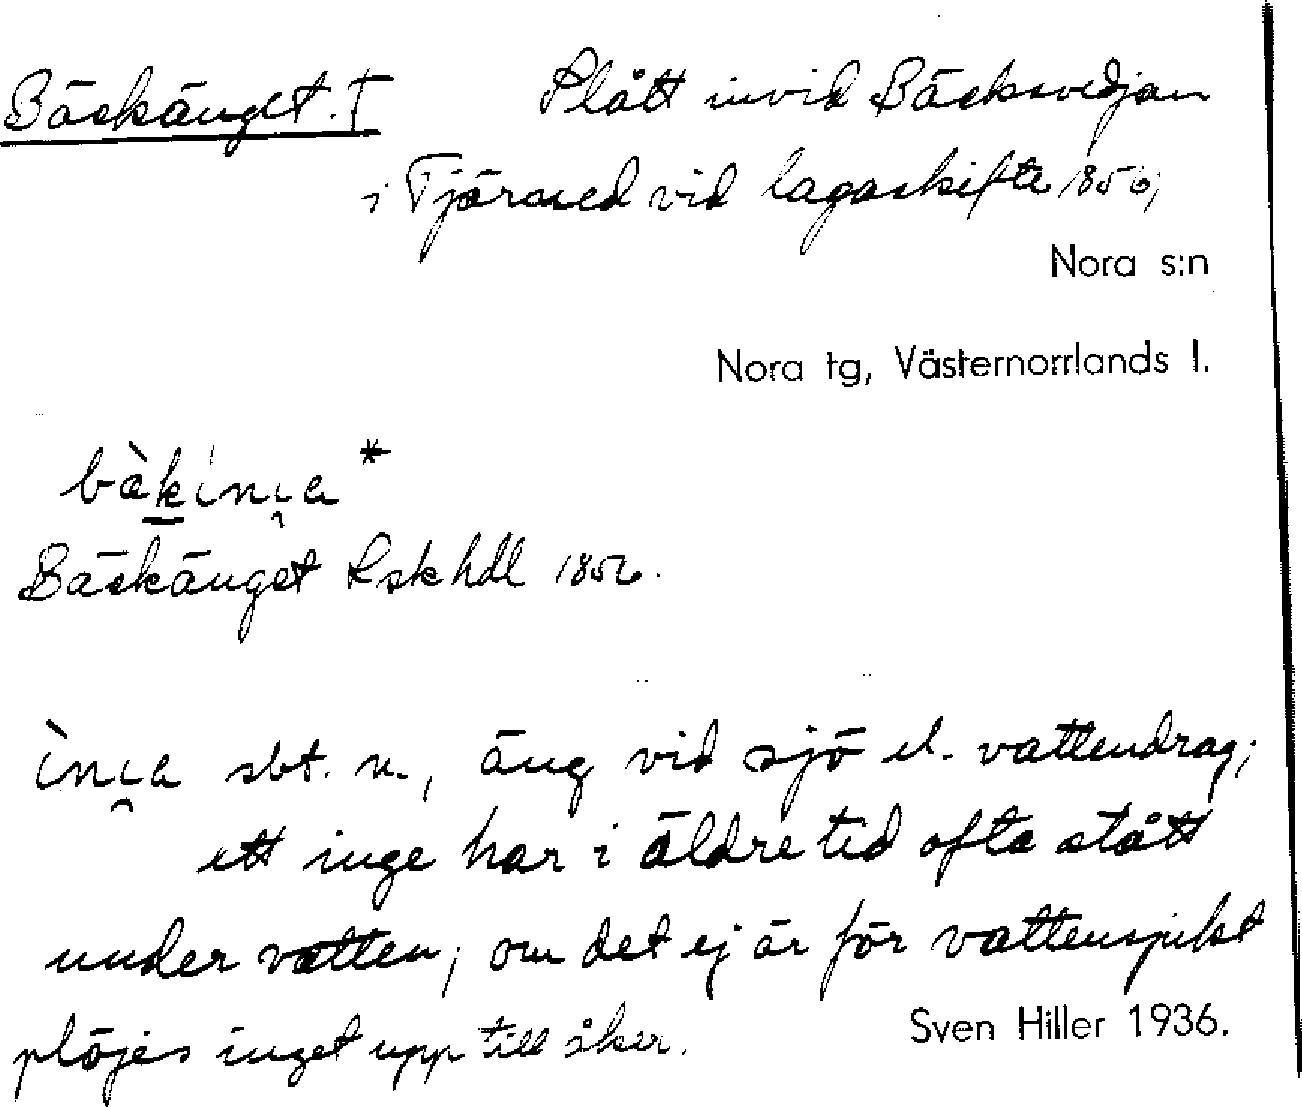 Bäckänget. † Plått invid Bäcksvedjan
i Tjärnsved vid lagaskifte 1856;
Nora s:n
Nora tg, Västernorrlands l.
Bäckänget Lskhdl 1856.
sbt. n., äng vid sjö el. vattendrag;
ett inge har i äldre tid ofta stått
under vatten; om det ej är för vattensjukt
plöjes inget upp till åker.
Sven Hiller 1936.